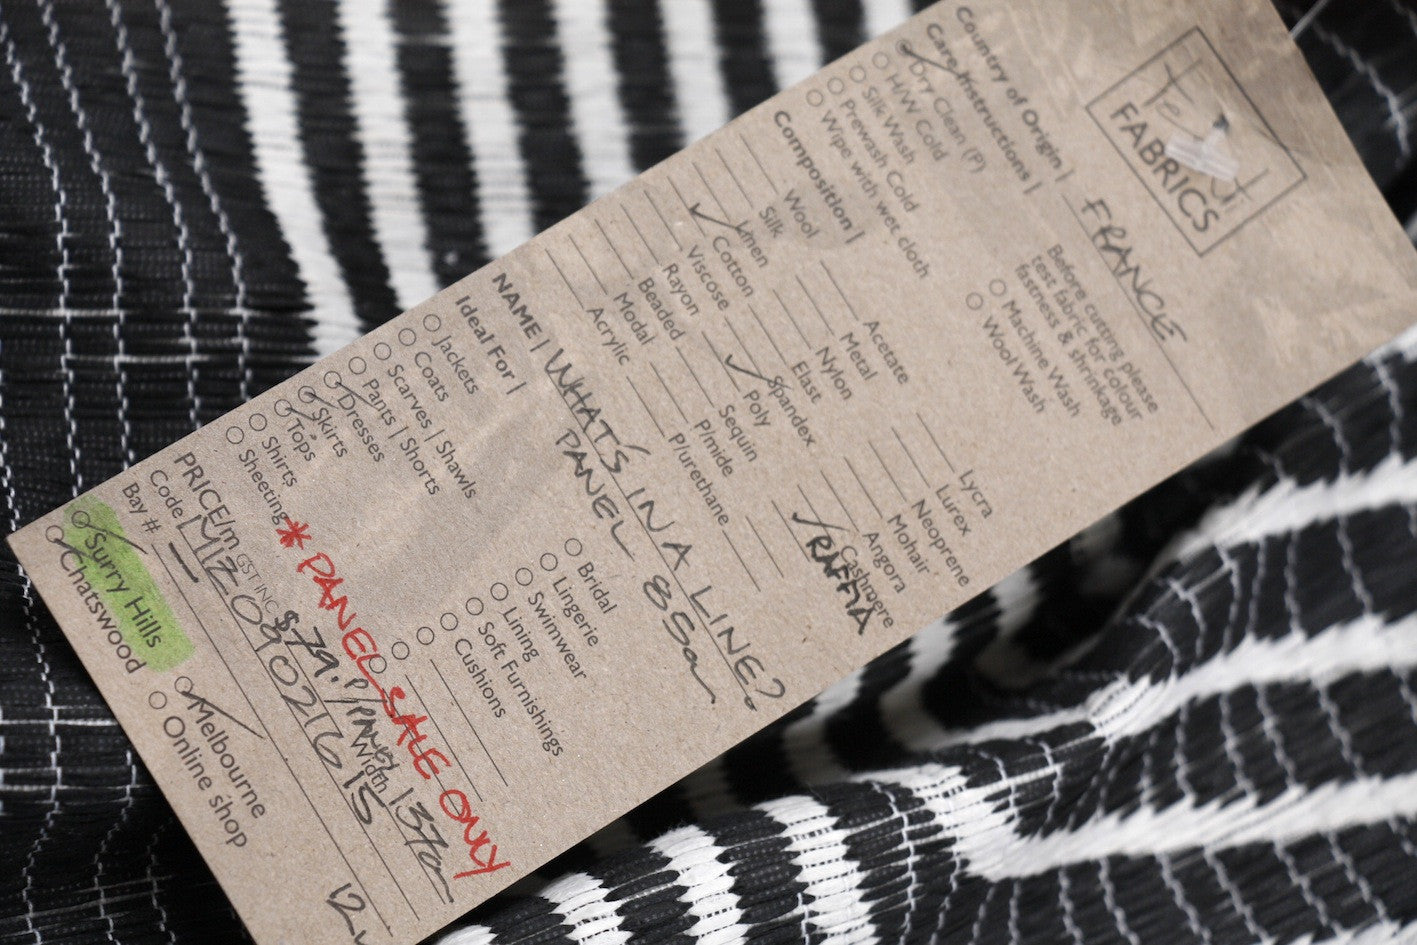 Te St
FABRICS
Country of Origin | FRANCE
Care Instructions |
Dry Clean (P)
H/W Cold
Silk Wash
Prewash Cold
Wipe with wet cloth
Before cutting please
test fabric for colour
fastness & shrinkage
Machine Wash
Wool Wash
Composition |
Wool
Silk
Linen
Cotton
Viscose
Rayon
Beaded
Modal
Acrylic
Acetate
Metal
Nylon
Elast
Spandex
Poly
Sequin
P/mide
P/urethane
Lycra
Lurex
Neoprene
Mohair
Angora
Cashmere
RAFFIA
NAME | WHAT'S IN A LINE?
PANEL 85cm
Ideal For |
Jackets
Coats
Scarves | Shawls
Pants | Shorts
Dresses
Skirts
Tops
Shirts
Sheeting
Bridal
Lingerie
Swimwear
Lining
Soft Furnishings
Cushions
* PANEL SALE ONLY
PRICE/m GST INC $79. P/PANEL
Width 137cm
Code 09021615
Bay #
Surry Hills
Chatswood
Melbourne
Online shop